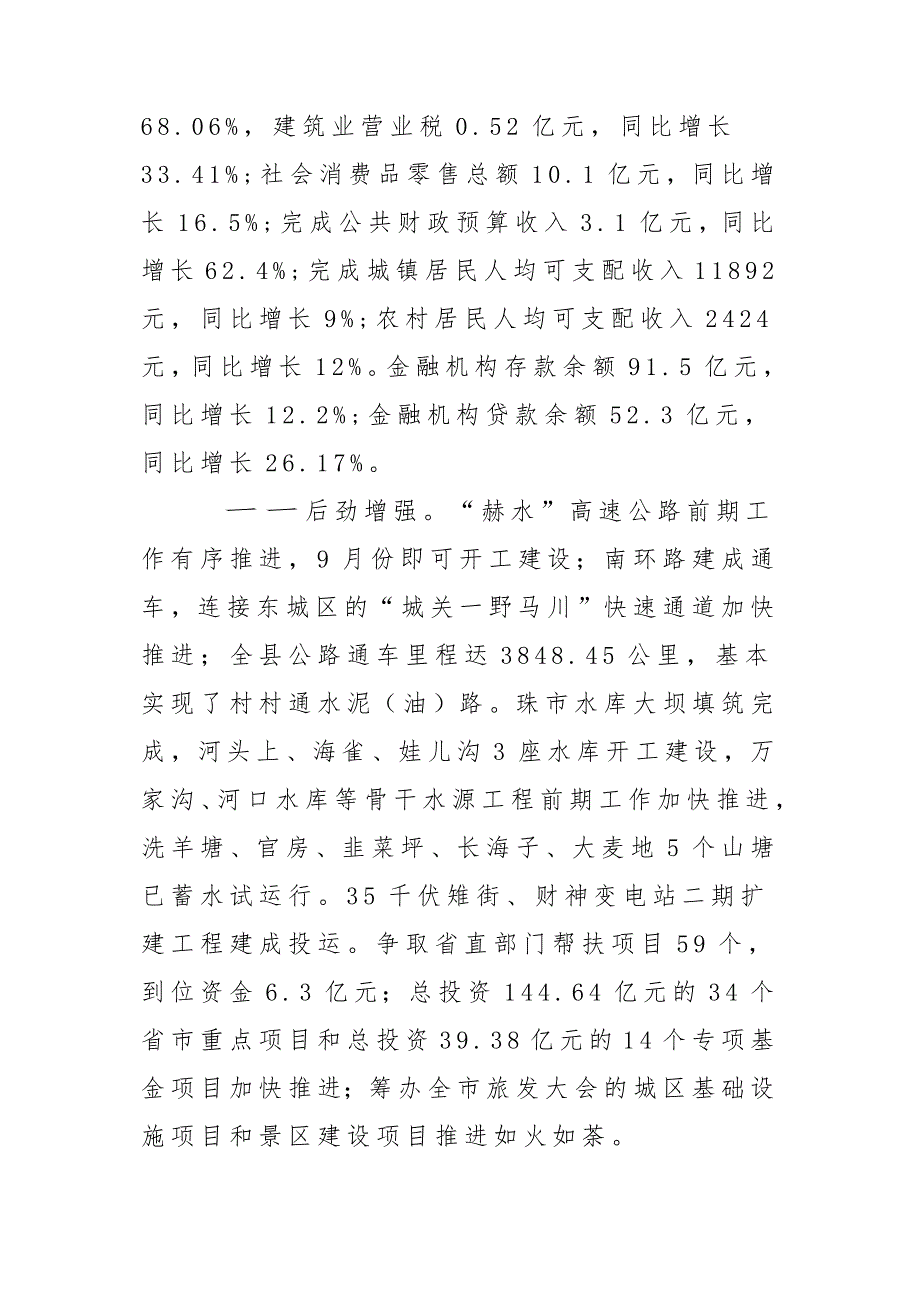 68.06%，建筑业营业税 0.52 亿元，同比增长
33.41%;社会消费品零售总额 10.1 亿元，同比增
长 16.5%;完成公共财政预算收入 3.1 亿元，同比
增长 62.4%;完成城镇居民人均可支配收入 11892
元，同比增长 9%;农村居民人均可支配收入 2424
元，同比增长 12%。金融机构存款余额 91.5 亿元，
同比增长 12.2%;金融机构贷款余额 52.3 亿元，
同比增长 26.17%。
——后劲增强。“赫水”高速公路前期工
作有序推进，9 月份即可开工建设；南环路建成通
车，连接东城区的“城关一野马川”快速通道加快
推进；全县公路通车里程达 3848.45 公里，基本
实现了村村通水泥（油）路。珠市水库大坝填筑完
成，河头上、海雀、娃儿沟 3 座水库开工建设，万
家沟、河口水库等骨干水源工程前期工作加快推进，
洗羊塘、官房、韭菜坪、长海子、大麦地 5 个山塘
已蓄水试运行。35 千伏雉街、财神变电站二期扩
建工程建成投运。争取省直部门帮扶项目 59 个，
到位资金 6.3 亿元；总投资 144.64 亿元的 34 个
省市重点项目和总投资 39.38 亿元的 14 个专项基
金项目加快推进；筹办全市旅发大会的城区基础设
施项目和景区建设项目推进如火如荼。